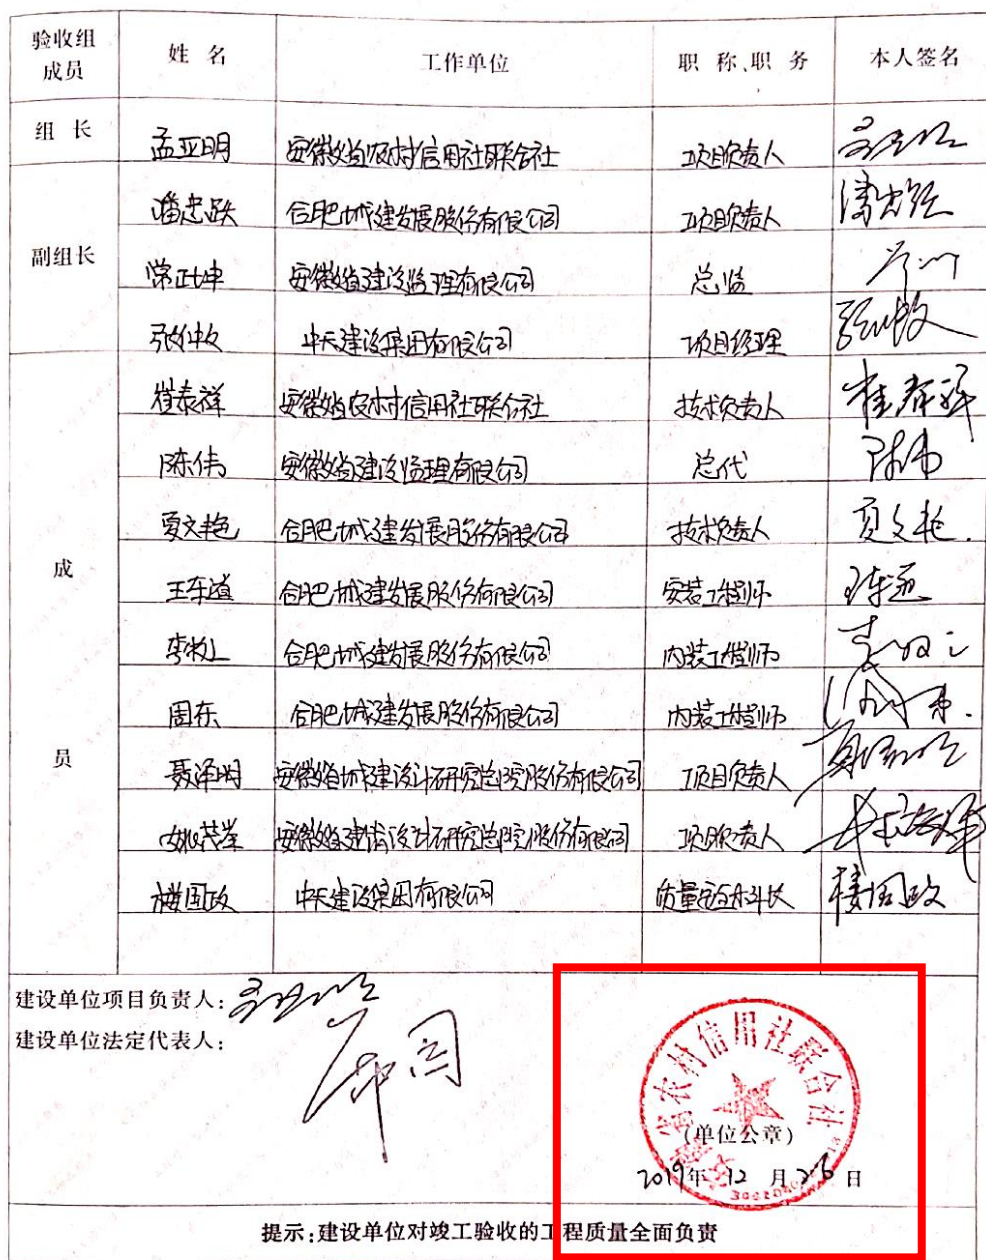 验收组成员 姓 名 工作单位 职 称、职 务 本人签名
组 长 孟亚明 安徽省农村信用社联合社 项目负责人
副组长 潘忠跃 合肥城建发展股份有限公司 项目负责人
常正坤 安徽省建设监理有限公司 总监
张仲牧 中天建设集团有限公司 项目经理 张仲牧
成员 桂泰祥 安徽省农村信用社联合社 技术负责人 桂泰祥
陈伟 安徽省建设监理有限公司 总代 陈伟
夏文艳 合肥城建发展股份有限公司 技术负责人 夏文艳.
王车道 合肥城建发展股份有限公司 安装工程师
合肥城建发展股份有限公司 内装工程师
周东 合肥城建发展股份有限公司 内装工程师 周东.
聂泽明 安徽省城建设计研究总院股份有限公司 项目负责人
姚茂举 安徽省建筑设计研究总院股份有限公司 项目负责人
楼国政 中天建设集团有限公司 质量安全科科长 楼国政
建设单位项目负责人:
建设单位法定代表人:
安徽省农村信用社联合社
(单位公章)
2019年12月26日
提示:建设单位对竣工验收的工程质量全面负责